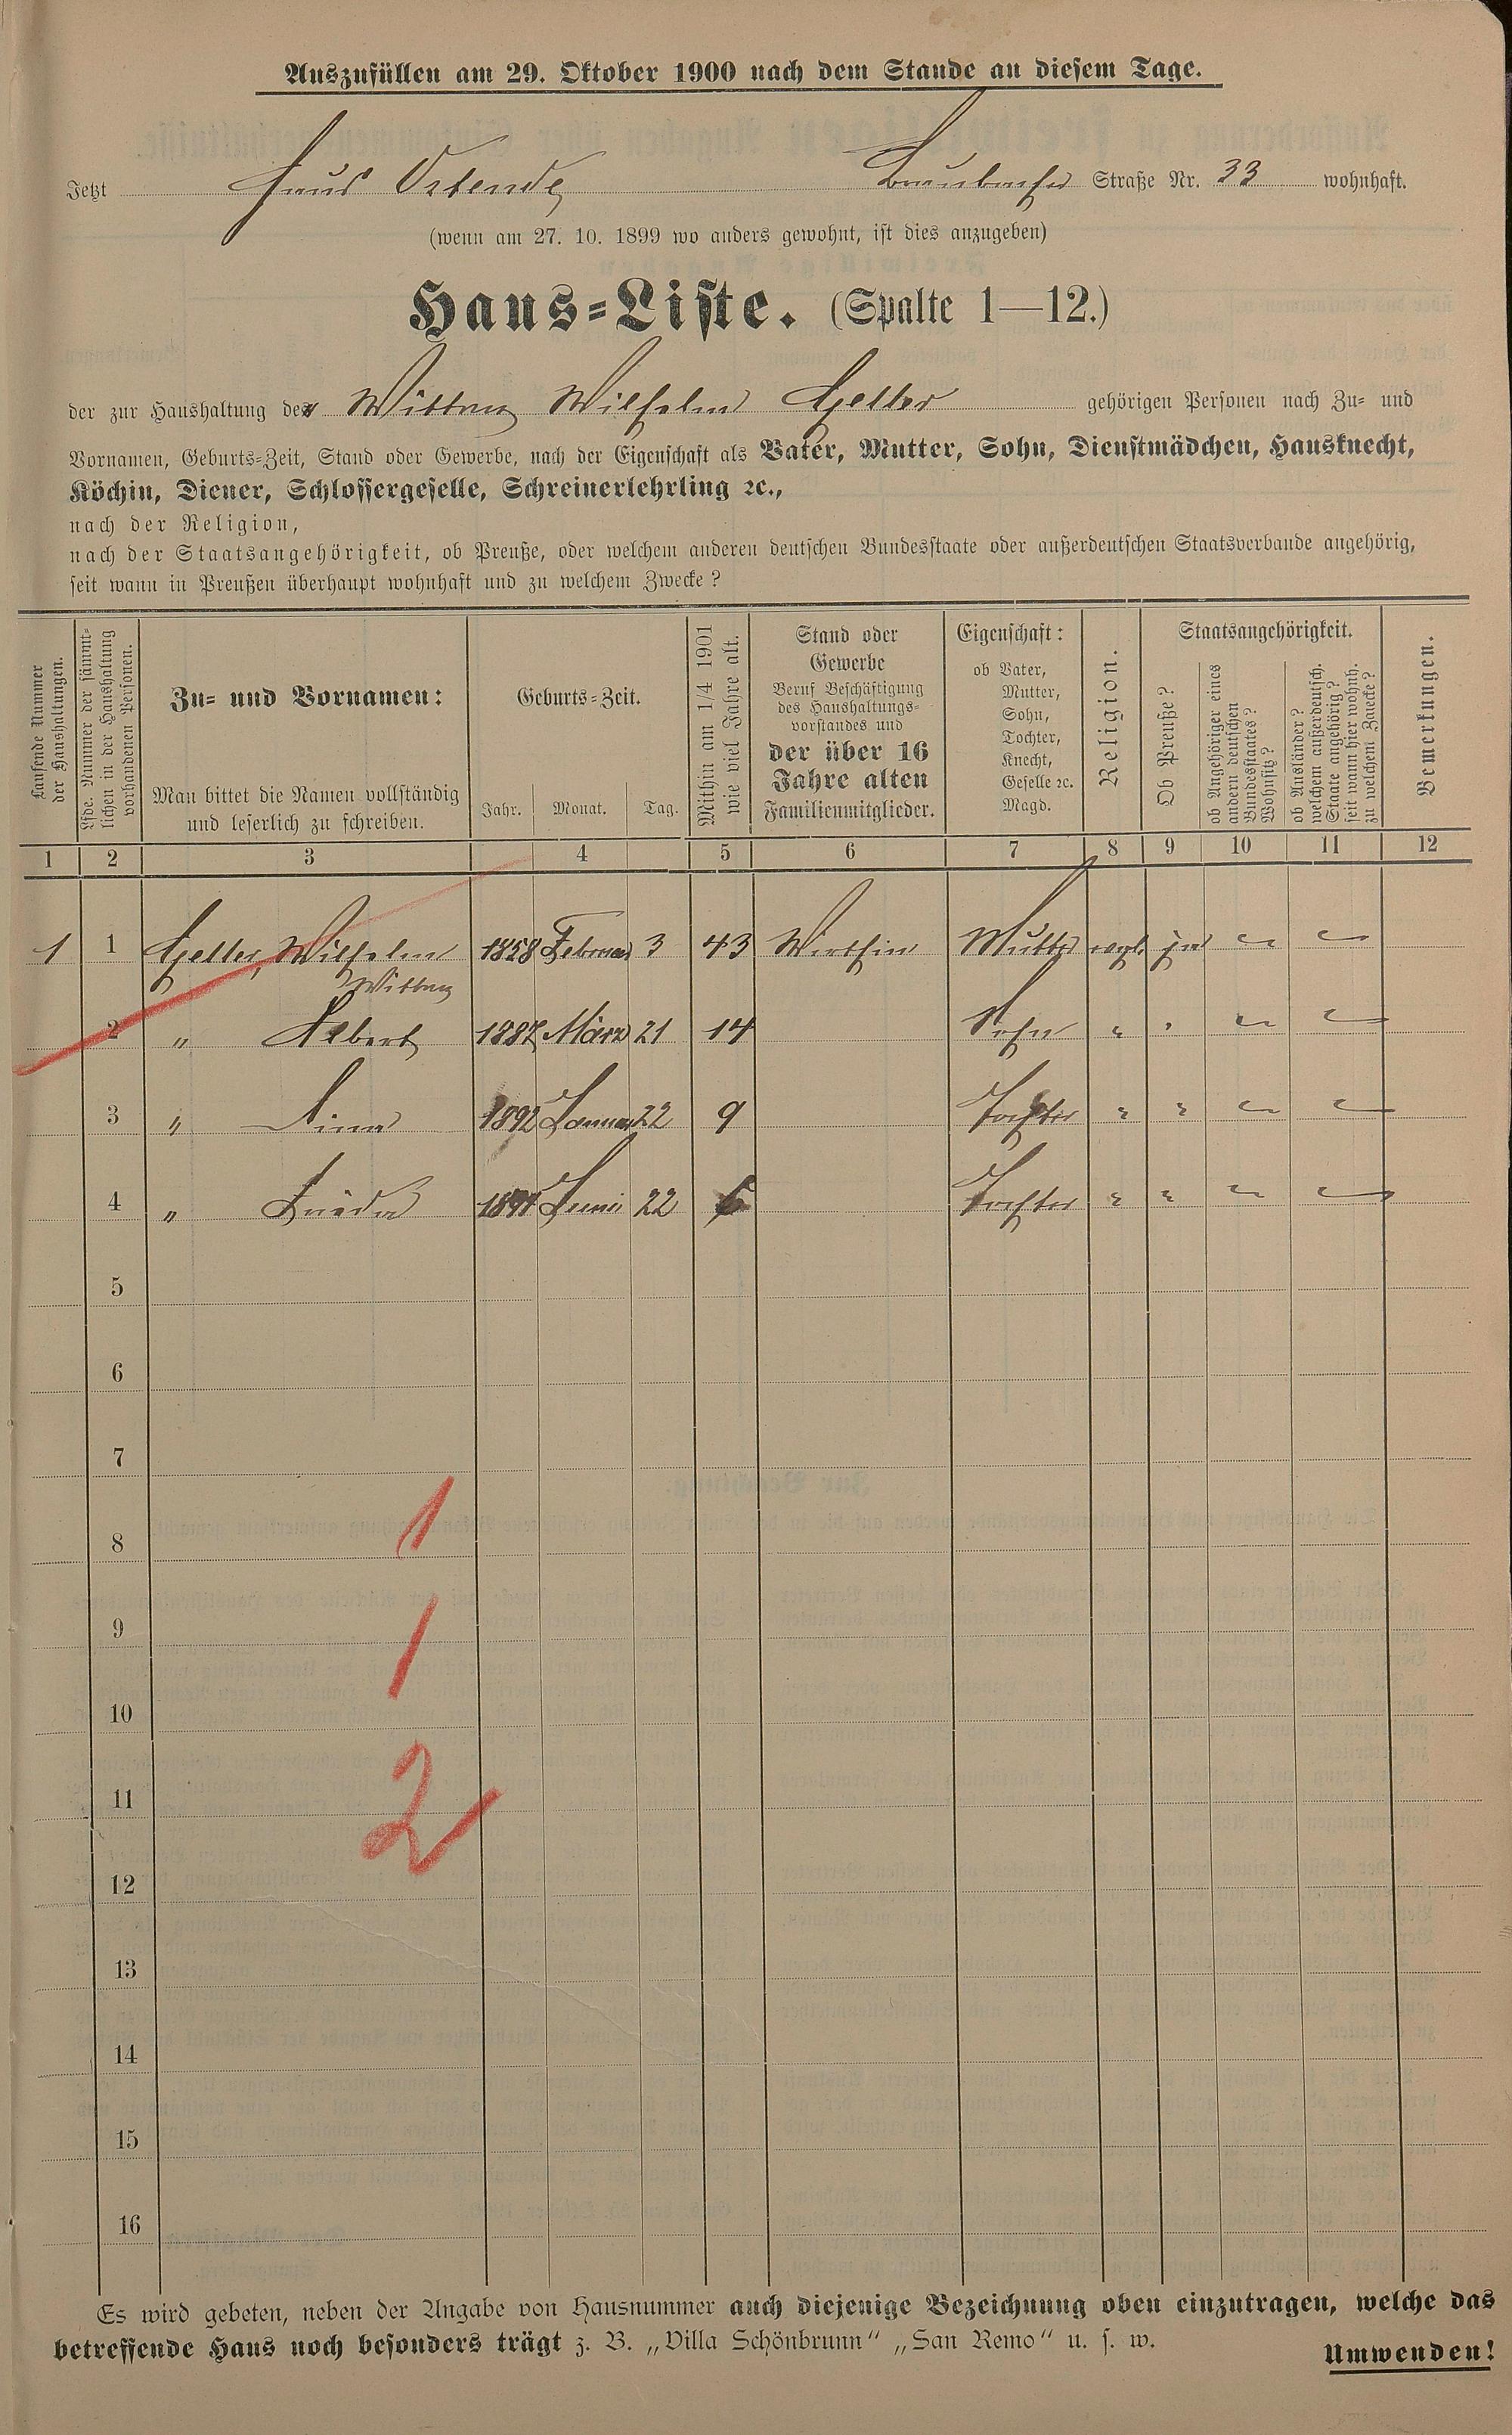 Auszufüllen am 29. Oktober 1900 nach dem Stande an diesem Tage.
Jetzt Haus Ostende Braubacher Straße Nr. 33 wohnhaft.
(wenn am 27. 10. 1899 wo anders gewohnt, ist dies anzugeben)
Haus-Liste. (Spalte 1—12.)
der zur Haushaltung der Wittwe Wilhelm Geller gehörigen Personen nach Zu- und
Vornamen, Geburts-Zeit, Stand oder Gewerbe, nach der Eigenschaft als Vater, Mutter, Sohn, Dienstmädchen, Hausknecht,
Köchin, Diener, Schlossergeselle, Schreinerlehrling ꝛc.,
nach der Religion,
nach der Staatsangehörigkeit, ob Preuße, oder welchem anderen deutschen Bundesstaate oder außerdeutschen Staatsverbande angehörig,
seit wann in Preußen überhaupt wohnhaft und zu welchem Zwecke?
Laufende Nummer
der Haushaltungen.
Lfde. Nummer der sämmt-
lichen in der Haushaltung
vorhandenen Personen.
Zu- und Vornamen:
Man bittet die Namen vollständig
und leserlich zu schreiben.
Geburts-Zeit.
Jahr. Monat. Tag.
Mithin am 1/4 1901
wie viel Jahre alt.
Stand oder
Gewerbe
Beruf Beschäftigung
des Haushaltungs-
vorstandes und
der über 16
Jahre alten
Familienmitglieder.
Eigenschaft:
ob Vater,
Mutter,
Sohn,
Tochter,
Knecht,
Geselle ꝛc.
Magd.
Religion.
Staatsangehörigkeit.
Ob Preuße?
ob Angehöriger eines
andern deutschen
Bundesstaates?
Wohnsitz?
ob Ausländer?
welchem außerdeutsch.
Staate angehörig?
seit wann hier wohnh.
zu welchem Zwecke?
Bemerkungen.
1 2 3 4 5 6 7 8 9 10 11 12
1 1 Geller, Wilhelm 1858 Februar 3 43 Wirthin Mutter evgl. ja
Wittwe
2 " Albert 1887 März 21 14 Sohn " "
3 " Lina 1892 Januar 22 9 Tochter " "
4 " Frieda 1894 Juni 22 6 Tochter " "
5
6
7
1
8
9
1
10
2
11
12
13
14
15
16
Es wird gebeten, neben der Angabe von Hausnummer auch diejenige Bezeichnung oben einzutragen, welche das
betreffende Haus noch besonders trägt z. B. „Villa Schönbrunn“ „San Remo“ u. s. w.
Umwenden!